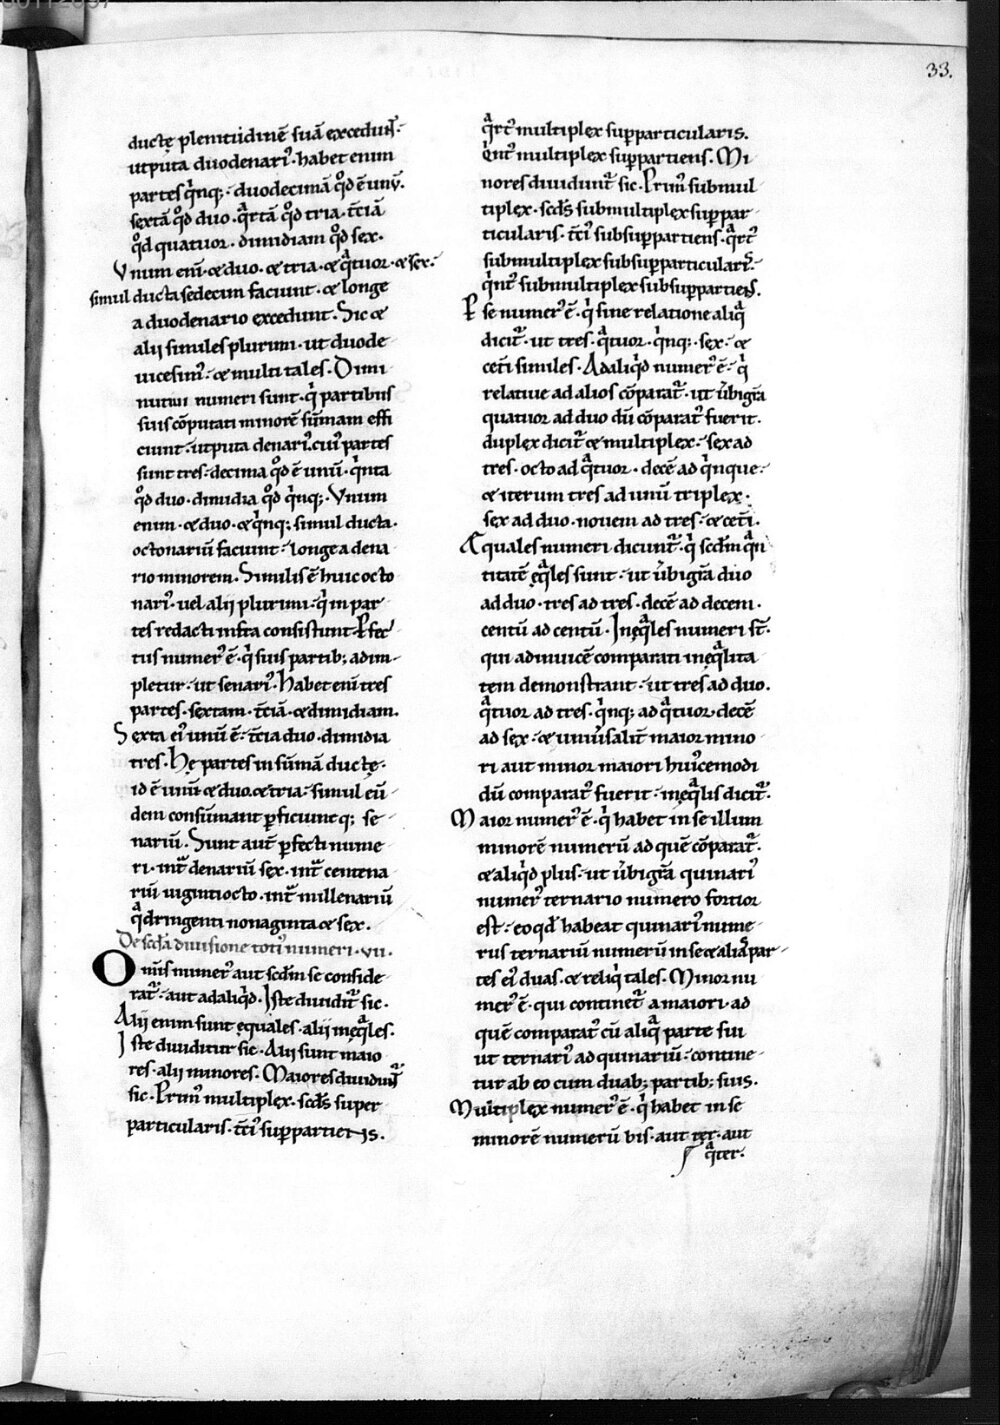 33.
ductę plenitudinē suā excedunt̄.
utputa duodenari᾽. habet enim
partes q̇nq;. duodecimā qđ ē unū.
sextā qđ duo. q̄rtā qđ tria. t̄ciā
qđ quatuor. dimidiam qđ sex.
Vnum eni᷒. & duo. & tria. & q̄tuor. & sex.
simul ducta sedecim faciunt. & longe
a duodenario excedunt. Sic &
alii similes plurimi. ut duode
uicesim᾽. & multi tales. Dimi
nutiui numeri sunt. q̇ partibus
suis cōputati minorē sūmam effi
ciunt. utputa denari᾽. cui᾽ partes
sunt tres. decima qđ ē unū. q̇nta
qđ duo. dimidia qđ q̇nq;. Vnum
enim. & duo. & q̇nq; simul ducta.
octonariū faciunt. longe a dena
rio minorem. Similis ē huic octo
nari᾽. uel alii plurimi. q̇ in par
tes redacti infra consistunt. Ꝑfec
tus numer᾽ ē. q̇ suis partib; adim
pletur. ut senari᾽. Habet eni᷒ tres
partes. sextam. t̄ciā. & dimidiam.
Sexta ei᾽ unū ē. t̄cia duo. dimidia
tres. Hę partes in sūmā ductę.
id ē unū & duo. & tria. simul eū
dem consūmant ꝑficiuntq; se
nariū. Sunt aut̄ ꝑfecti nume
ri. int̄ denariū sex. int̄ centena
riū uigintiocto. int̄ millenariū
q̄dringenti nonaginta & sex.
De scđa diuisione toti᾽ numeri. VII.
Omīs numer᾽ aut scđm se conside
rat᷑. aut ad aliq̇d. Iste diuidit᷑ sic.
Alii enim sunt ęquales. alii ineq̄les.
Iste diuiditur sic. Alii sunt maio
res. alii minores. Maiores diuidunt᷑
sic. Prim᾽ multiplex. scđs super
particularis. t̄ci᾽ suꝑpartiens.
q̄rt᾽ multiplex suꝑparticularis.
q̇nt᾽ multiplex suꝑpartiens. Mi
nores diuidunt᷑ sic. Prim᾽ submul
tiplex. scđs submultiplex suꝑpar
ticularis. t̄ci᾽ subsuꝑpartiens. q̄rt᾽
submultiplex subsuꝑparticularis.
q̇nt᾽ submultiplex subsuꝑpartiens.
Ꝑ se numer᾽ ē. q̇ sine relatione aliq̄
dicit᷑. ut tres. q̄tuor. q̇nq;. sex. &
cet̄i similes. Ad aliq̇d numer᾽ ē. q̇
relatiue ad alios cōparat᷑. ut ůbi gr̄a
quatuor ad duo dū cōparat᷑ fuerit.
duplex dicit᷑ & multiplex. sex ad
tres. octo ad q̄tuor. decē ad q̇nque.
& iterum tres ad unū triplex.
sex ad duo. nouem ad tres. & cet̄i.
Ęquales numeri dicunt᷑. q̇ scđm q̄n
titatē ęq̄les sunt. ut ůbi gr̄a duo
ad duo. tres ad tres. decē ad decem.
centū ad centū. Inęq̄les numeri st̄.
qui adinuicē comparati inęq̄lita
tem demonstrant. ut tres ad duo.
q̄tuor ad tres. q̇nq; ad q̄tuor. decē
ad sex. & uniůsalit᷑ maior mino
ri aut minor maiori hui᾽cemodi
dū comparat᷑ fuerit. inęq̄lis dicit᷑.
Maior numer᾽ ē. q̇ habet in se illum
minorē numerū ad quē cōparat᷑.
& aliq̇d plus. ut ůbi gr̄a quinari᾽
numer᾽ ternario numero fortior
est. eo qđ habeat quinari᾽ nume
rus ternariū numerū in se & alias par
tes ei᾽ duas. & reliq̇ tales. Minor nu
mer᾽ ē. qui continet᷑ a maiori. ad
quē comparat᷑ cū aliq̄ parte sui
ut ternari᾽ ad quinariū. contine
tur ab eo cum duab; partib; suis.
Multiplex numer᾽ ē. q̇ habet in se
minorē numerū bis. aut ter. aut
q̄ter.